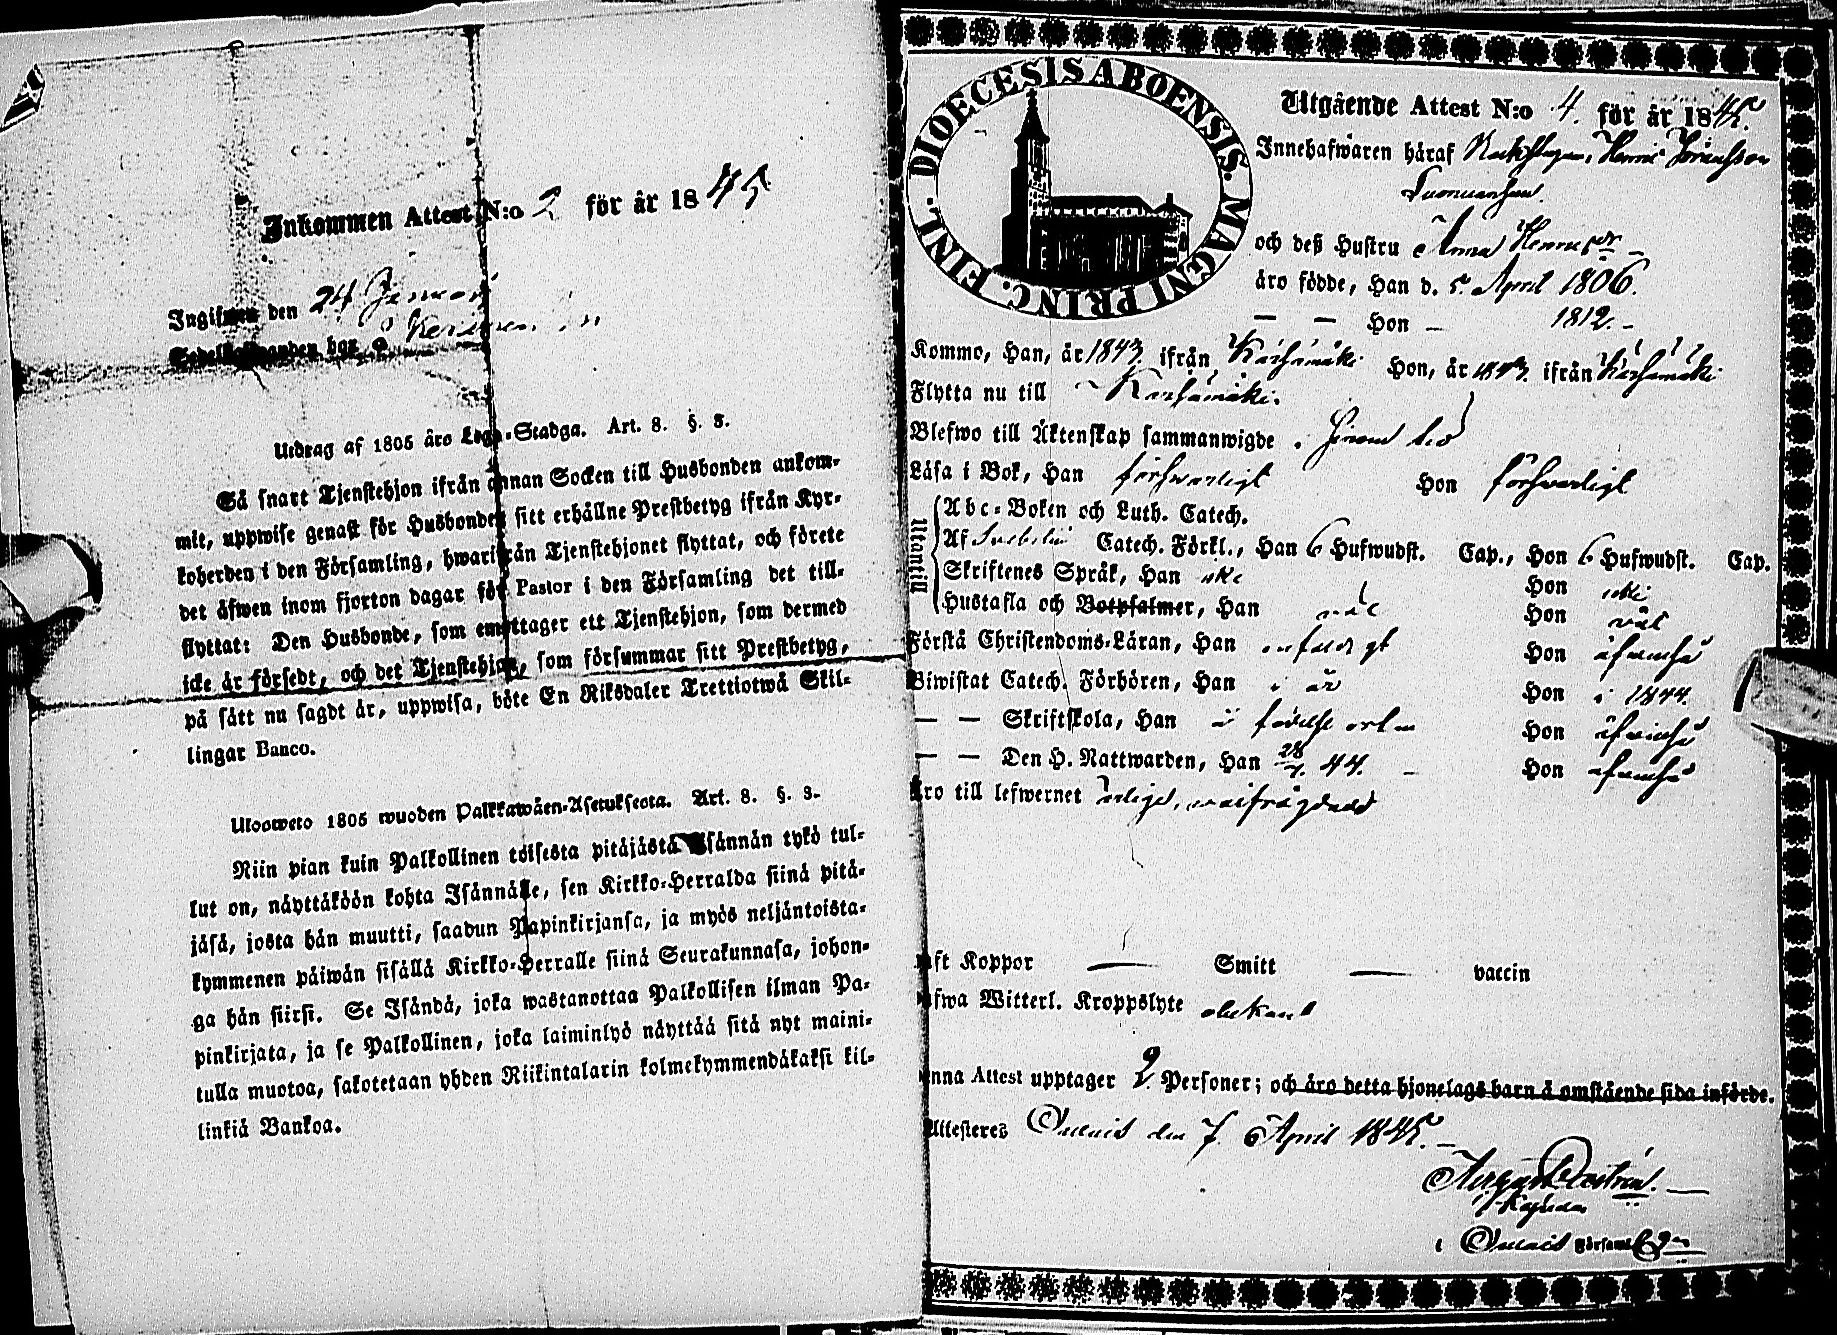 Inkommen Attest N:o 2 för år 1845
Ingifwen den 24
Utdrag af 1805 års Lego-Stadga. Art. 8. §. 3.
Så snart Tjenstehjon ifrån annan Socken till Husbonden ankom-
mit, uppwise genast för Husbonden sitt erhållne Prestbetyg ifrån Kyr-
koherden i den Församling, hwarifrån Tjenstehjonet flyttat, och förete
det äfwen inom fjorton dagar för Pastor i den Församling det till-
flyttat: Den Husbonde, som emottager ett Tjenstehjon, som dermed
icke är försedt, och det Tjenstehjon, som försummar sitt Prestbetyg,
på sätt nu sagdt är, uppwisa, böte En Riksdaler Trettiotwå Skil-
lingar Banco.
Ulosweto 1805 wuoden Palkkawäen-Asetuksesta. Art. 8. §. 3.
Niin pian kuin Palkollinen toisesta pitäjästä Isännän tykö tul-
lut on, näyttäköön kohta Isännälle, sen Kirkko-Herralda siinä pitä-
jäsä, josta hän muutti, saadun Papinkirjansa, ja myös neljäntoista-
kymmenen päiwän sisällä Kirkko-Herralle siinä Seurakunnasa, johon-
ga hän siirsi. Se Isändä, joka wastanottaa Palkollisen ilman Pa-
pinkirjata, ja se Palkollinen, joka laiminlyö näyttää sitä nyt maini-
tulla muotoa, sakotetaan yhden Riikintalarin kolmekymmendäkaksi kil-
linkiä Bankoa.
DIOECESIS ABOENSIS. MAGNI PRINC. FINL.
Utgående Attest N:o 4. för år 1845.
Innehafwaren häraf
och deß Hustru Anna
äro födde, Han d. 5. April 1806.
— — Hon – 1812. –
Kommo, Han, år 1843. ifrån Kärsämäki Hon, år 1843. ifrån Kärsämäki
Flytta nu till Kärsämäki.
Blefwo till Äktenskap sammanwigde
Läsa i Bok, Han försvarligt Hon försvarligt
Utantill
Abc-Boken och Luth. Catech.
Af Svebilii Catech. Förkl., Han 6 Hufwudst. Cap., Hon 6 Hufwudst. Cap.
Skriftenes Språk, Han icke Hon icke
Hustafla och Botpsalmer, Han väl Hon väl
Förstå Christendoms-Läran, Han enfaldigt Hon äfvenså
Biwistat Catech. Förhören, Han i år Hon i 1844.
— — Skriftskola, Han å födelse orten Hon äfvenså
— — Den H. Nattwarden, Han 44. – Hon äfvenså
Äro till lefwernet ärlige,
aft Koppor — Smitt — vaccin
afwa Witterl. Kroppslyte obekant
enna Attest upptager 2 Personer; och äro detta hjonelags barn å omstående sida införde.
Attesteres den 7. April 1845. –
i Församl